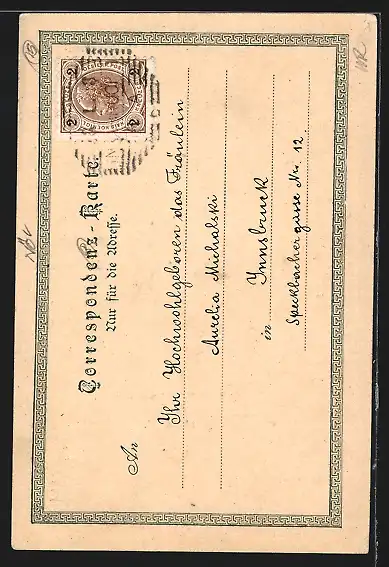 Correspondenz-Karte.
Nur für die Adresse.
2 2
2 2
An
Ihr Hochwohlgeboren das Fräulein
Aurelia Michalski
in Innsbruck
Speckbachergasse Nr. 12